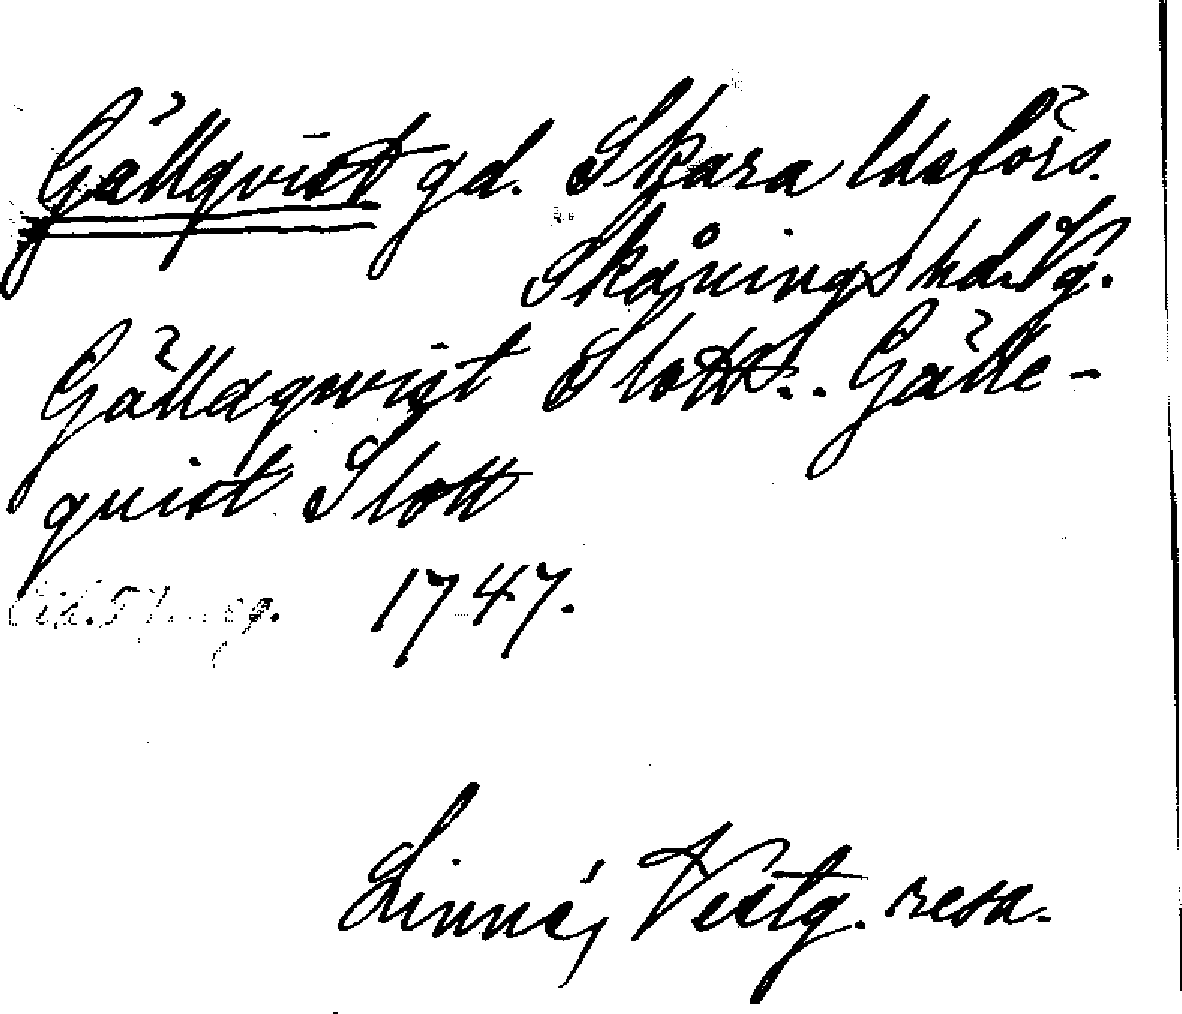 Gällqvist gd. Skara ldsförs.
Skånings hd. Vg.
Gälldqwist Slott. . Gälle-
quist Slott
1747.
Linné, Vestg. resa.